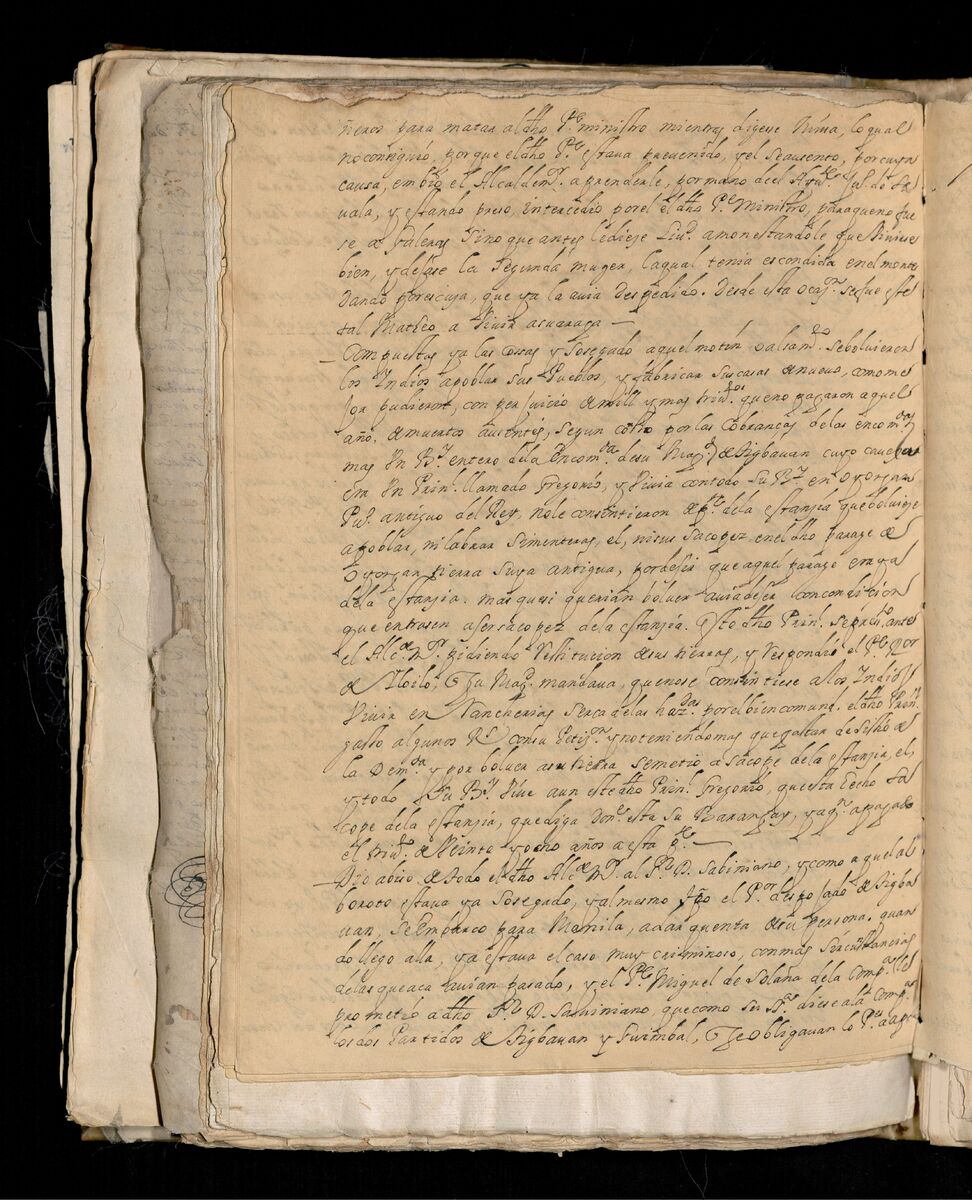 ñeros para matar al dho Pe. ministro mientras digese Missa, lo qual
no consiguió, porque el dho Pe. estava prevenido, y el se ausento, por cuya
causa, embió el Alcalde mr. a prenderle, por mano del
vala, y estando preso, intercedio por el el dho Pe. Ministro, para que no fue
se a Galeras sino que antes le diese amonestandole que viviese
bien, y dejase la segunda muger, la qual tenia escondida en el monte
dando por escusa, que ya la avia despedido. desde esta ocaon. se fue este
tal Matheo a vivir a
Compuestas ya las cosas y sosegado aquel motin se bolvieron
los Indios a poblar sus Pueblos, y fabricar sus casas de nuevo, como me
jor pudieron, con perjuicio de mill y mas tribos. que no pagaron aquel
año, de muertos ausentes, segun consto por las cobranças de las encomdas
mas Un By. entero de la Encomda. de su Magd. de Sigbauan cuyo caveza
era Un Prinl. llamado Gregorio, y vivia con todo su By. en Oyongan
Puo. antiguo del Rey, no le consintieron de pte. de la estansia que bolviese
a poblar, ni labrar simenteras, el, ni sus sacopez en el dho parage de
Oyongan tierra suya antigua, por desir que aquel parage era ya
de la estansia. mas que si querian bolver auia de ser con condicion
que entrasen a ser sacopez de la estansia. Este dho Prinl. se presto. ante
el Alcde. Mr. pidiendo restitucion de sus tierras, y respondió el Pe. Por
de Yloilo, que su Magd. mandava, que no se consintiese a los Indios
vivir en Rancherias serca de las hazdas. por el bien comun. el dho Prinl.
gasto algunos Rs. con su Petion. y no teniendo mas que gastar desistio de
la Demda. y por bolver a su tierra se metio a sacope de la estansia, el
y todo su By. vive aun este dho Prinl. Gregorio, que esta hecho sa
cope de la estansia, que diga donde esta su Barangay, y a qn. a pagado
el tribo. de veinte y ocho años a esta pte.
Dio aviso de todo el dho Alcde. Mr. al Sr. D. Sabiniano, y como aquel al
boroto estava ya sosegado, y al mesmo tpo el Por. despojado de Sigba
uan, se embarco para Manila, a dar quenta de su persona. quan
do llego alla, ya estava el caso muy criminoso, con mas sircunstancias
de las que aca avian pasado, y el Pe. Miguel de Solana de la Compa. les
prometio a dho Sr. D. Saviniano, que como su Sa. diese a la Compa.
los dos Partidos de Sigbauan y Guimbal, se obligavan los Pes. a